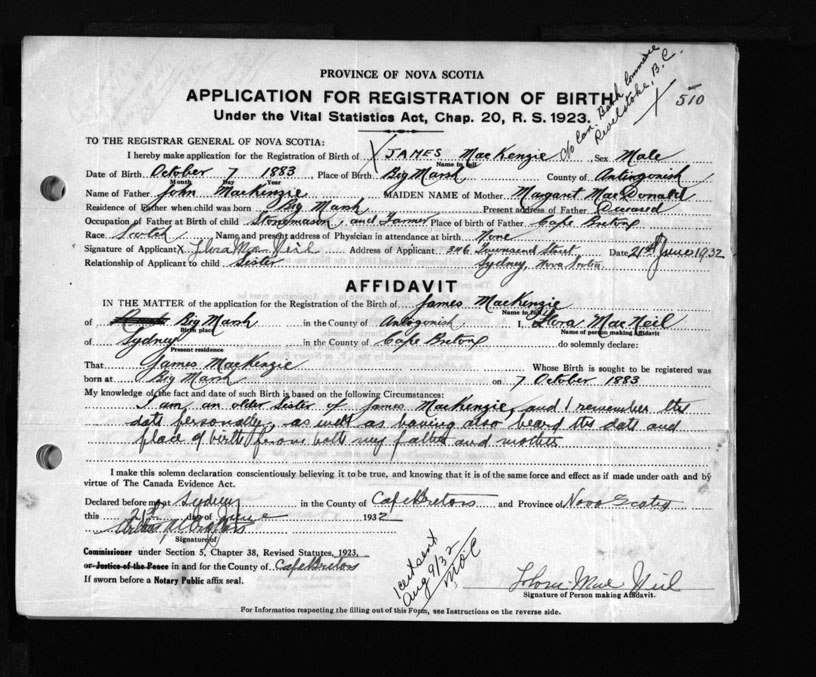 c/o Can. Bank Commerce
Revelstoke, B.C.
510
PROVINCE OF NOVA SCOTIA
APPLICATION FOR REGISTRATION OF BIRTH
Under the Vital Statistics Act, Chap. 20, R. S. 1923.
TO THE REGISTRAR GENERAL OF NOVA SCOTIA:
I hereby make application for the Registration of Birth of X JAMES MacKenzie Sex Male
Name in full
Date of Birth October 7 1883 Place of Birth Big Marsh County of Antigonish
Month Day Year
Name of Father John MacKenzie MAIDEN NAME of Mother Margaret MacDonald
Residence of Father when child was born Big Marsh Present address of Father Deceased
Occupation of Father at Birth of child Stonemason and Farmer Place of birth of Father Cape Breton
Race Scotch Name and present address of Physician in attendance at birth None
Signature of Applicant X Flora MacNeil Address of Applicant 246 Townsend Street Date 21st June 1932
Relationship of Applicant to child Sister Sydney, Nova Scotia
AFFIDAVIT
IN THE MATTER of the application for the Registration of the Birth of James MacKenzie
Name in full
of Big Marsh in the County of Antogonish I, Flora MacNeil
Birth place Name of person making Affidavit
of Sydney in the County of Cape Breton do solemnly declare:
Present residence
That James MacKenzie Whose Birth is sought to be registered was
born at Big Marsh on 7 October 1883
My knowledge of the fact and date of such Birth is based on the following Circumstances:
I am an older sister of James MacKenzie, and I remember the
date personally, as well as having also heard the date and
place of birth from both my father and mother
I make this solemn declaration conscientiously believing it to be true, and knowing that it is of the same force and effect as if made under oath and by
virtue of The Canada Evidence Act.
Declared before me at Sydney in the County of Cape Breton and Province of Nova Scotia
this 21st day of June 1932
Signature of
Commissioner under Section 5, Chapter 38, Revised Statutes, 1923.
or Justice of the Peace in and for the County of Cape Breton
If sworn before a Notary Public affix seal.
1 cert sent
Aug 9/32
Flora Mac Neil
Signature of Person making Affidavit.
For Information respecting the filling out of this Form, see Instructions on the reverse side.